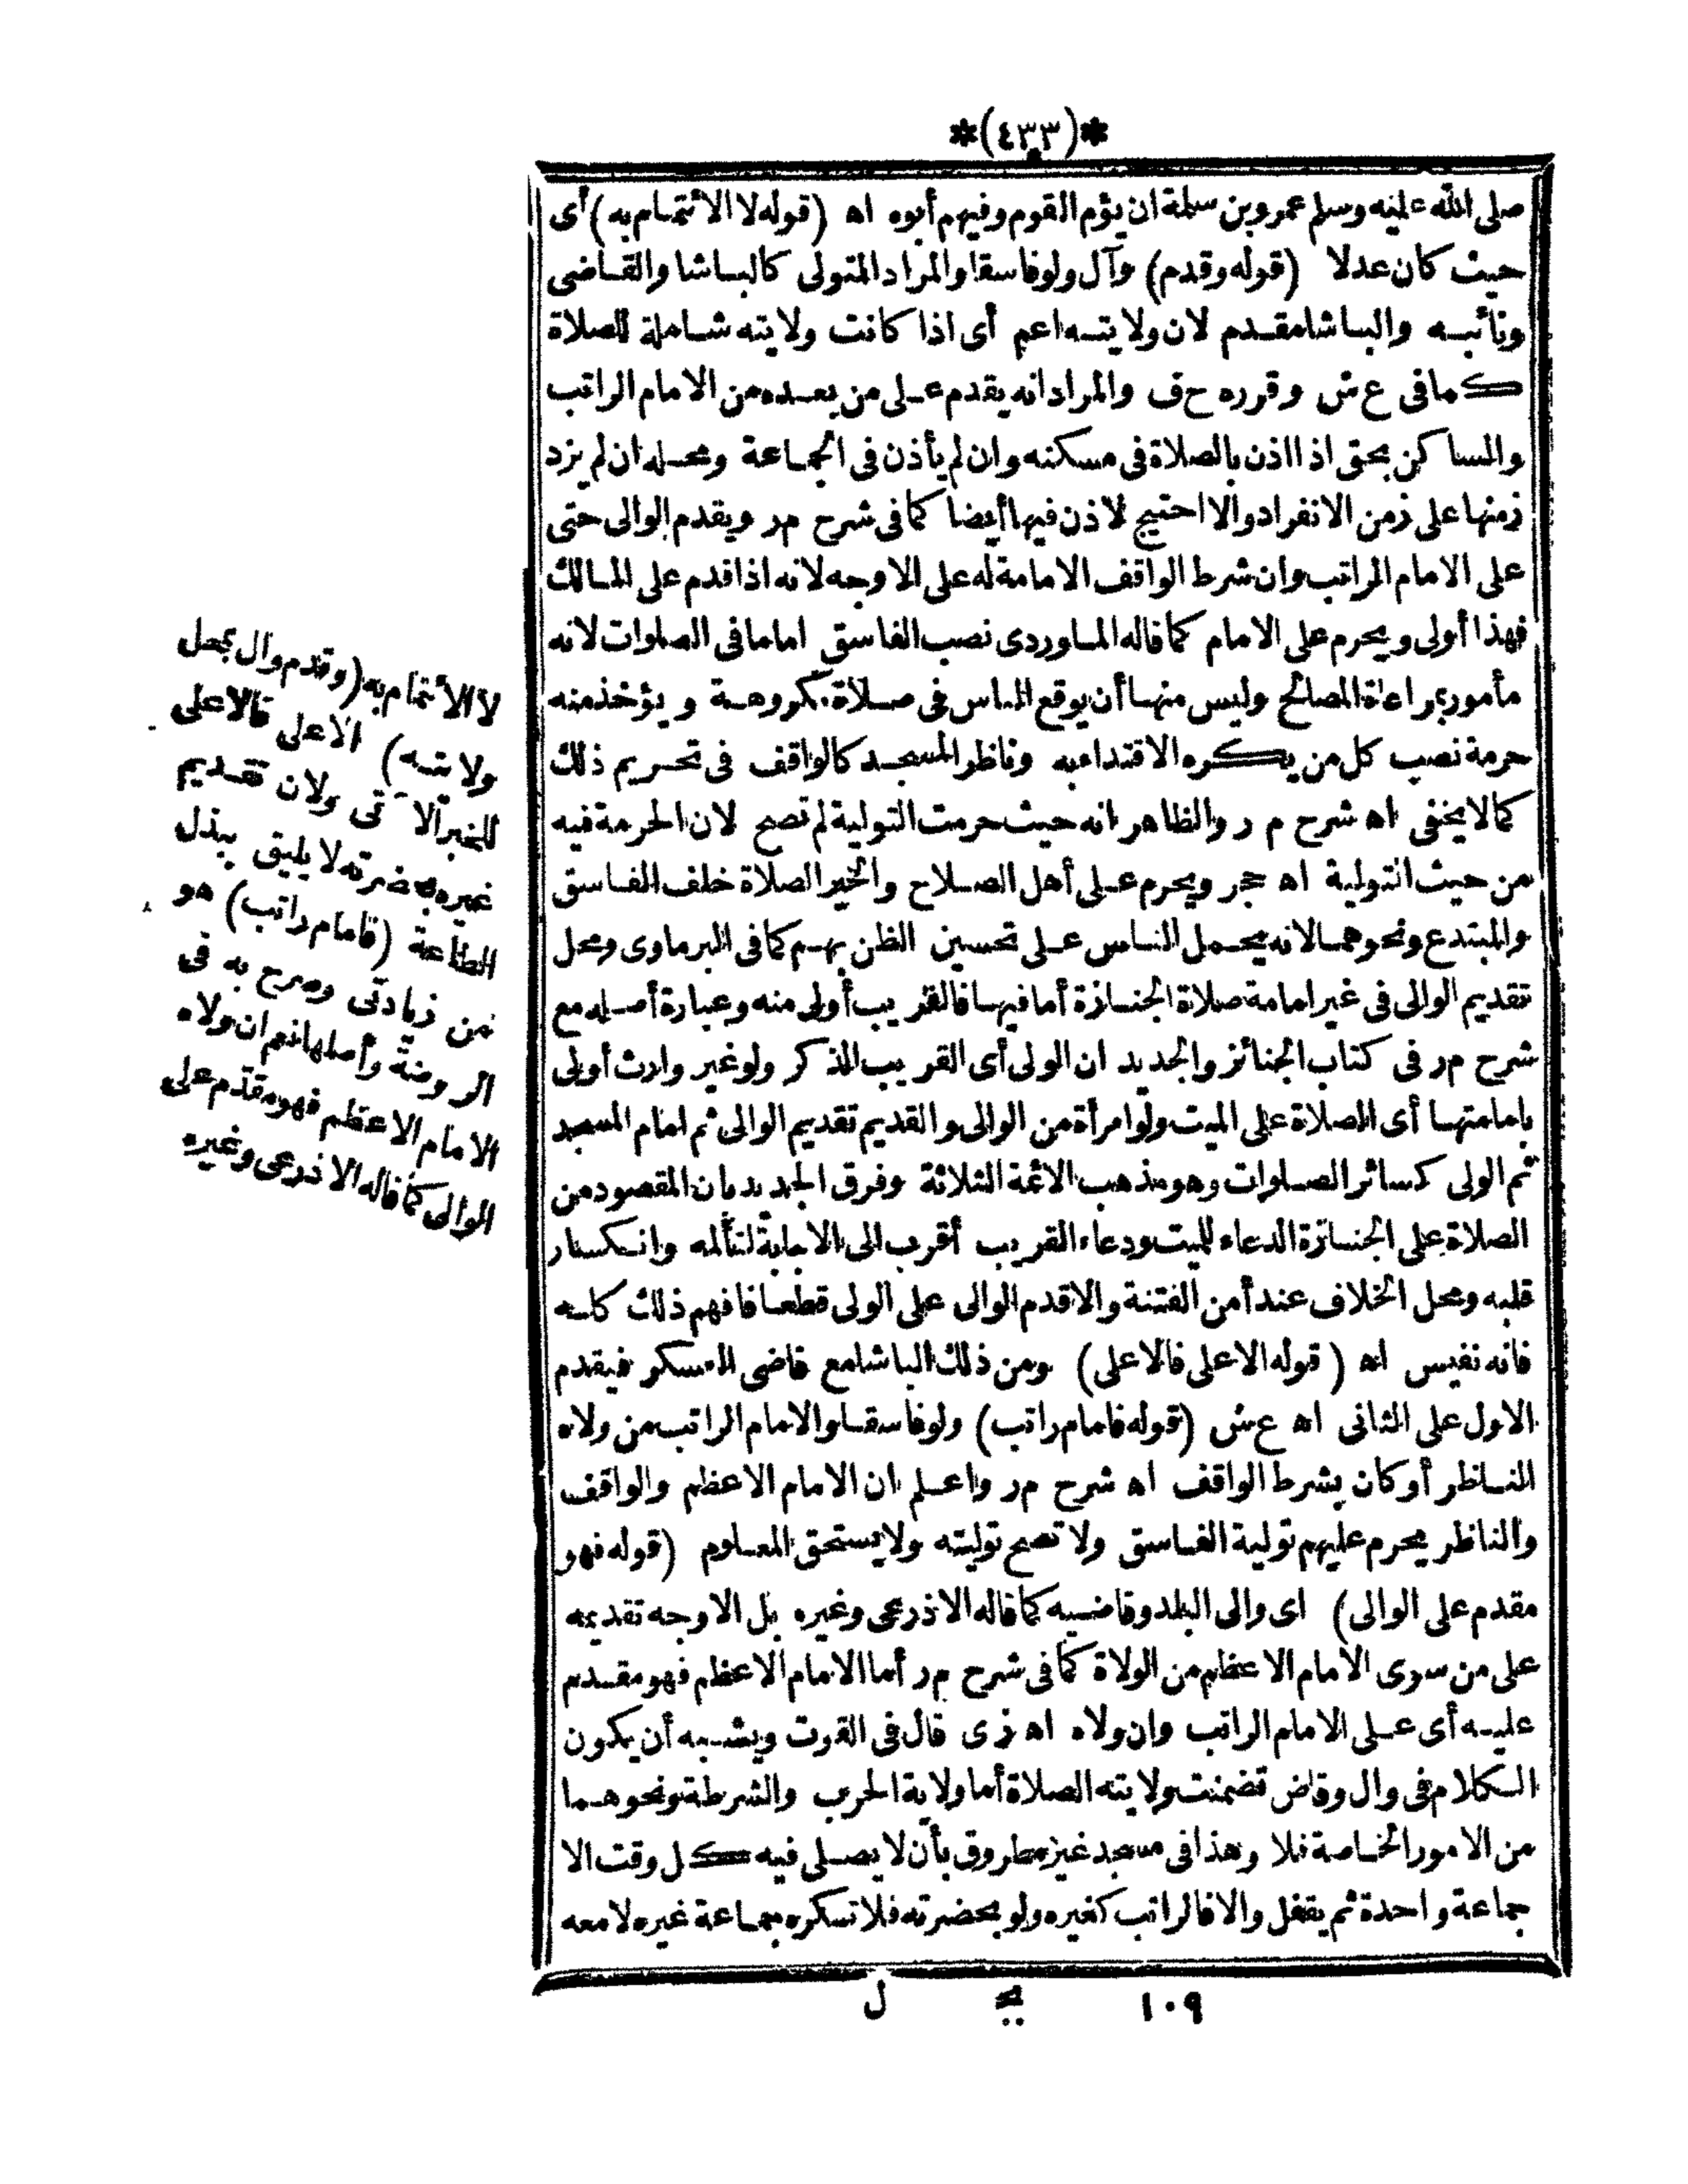 *(٤٣٣)*
صلى الله عليه وسلم عمرو بن سلمة ان يؤم القوم وفيهم أبوه اه (قوله لا الائتمام به) أى
حيث كان عدلا (قوله وقدم) وآل ولو فاسقا والمراد المتولى كالباشا والقاضى
ونائبه والباشا مقدم لان ولايته اعم أى اذا كانت ولايته شاملة للصلاة
كما فى ع ش وقرره ح ف والمراد انه يقدم على من بعده من الامام الراتب
والساكن بحق اذا اذن بالصلاة فى مسكنه وان لم يأذن فى الجماعة ومحله ان لم يزد
زمنها على زمن الانفراد والا احتيج لاذن فيها أيضا كما فى شرح م ر ويقدم الوالى حتى
على الامام الراتب وان شرط الواقف الامامة له على الاوجه لانه اذا قدم على المالك
فهذا أولى ويحرم على الامام كما قاله الماوردى نصب الفاسق اماما فى الصلوات لانه
مأمور بمراعاة المصالح وليس منها أن يوقع الناس فى صلاة مكروهة ويؤخذ منه
حرمة نصب كل من يكره الاقتداء به وناظر المسجد كالواقف فى تحريم ذلك
كما لا يخفى اه شرح م ر والظاهر انه حيث حرمت التولية لم تصح لان الحرمة فيه
من حيث التولية اه حجر ويحرم على أهل الصلاح والخير الصلاة خلف الفاسق
والمبتدع ونحوهما لانه يحمل الناس على تحسين الظن بهم كما فى البرماوى ومحل
تقديم الوالى فى غير امامة صلاة الجنازة أما فيها فالقريب أولى منه وعبارة أصله مع
شرح م ر فى كتاب الجنائز والجديد ان الولى أى القريب الذكر ولو غير وارث أولى
بامامتها أى الصلاة على الميت ولو امرأة من الوالى والقديم تقديم الوالى ثم امام المسجد
ثم الولى كسائر الصلوات وهو مذهب الائمة الثلاثة وفرق الجديد بان المقصود من
الصلاة على الجنازة الدعاء للميت ودعاء القريب أقرب الى الاجابة لتألمه وانكسار
قلبه ومحل الخلاف عند أمن الفتنة والا قدم الوالى على الولى قطعا فافهم ذلك كله
فانه نفيس اه (قوله الاعلى فالاعلى) ومن ذلك الباشا مع قاضى العسكر فيقدم
الاول على الثانى اه ع ش (قوله فامام راتب) ولو فاسقا والامام الراتب من ولاه
الناظر أو كان بشرط الواقف اه شرح م ر واعلم ان الامام الاعظم والواقف
والناظر يحرم عليهم تولية الفاسق ولا تصح توليته ولا يستحق المعلوم (قوله فهو
مقدم على الوالى) اى والى البلد وقاضيه كما قاله الاذرعى وغيره بل الاوجه تقديمه
على من سوى الامام الاعظم من الولاة كما فى شرح م ر أما الامام الاعظم فهو مقدم
عليه أى على الامام الراتب وان ولاه اه ز ى قال فى القوت ويشبه أن يكون
الكلام فى وال وقاض تضمنت ولايته الصلاة أما ولاية الحرب والشرطة ونحوهما
من الامور الخاصة فلا وهذا فى مسجد غير مطروق بأن لا يصلى فيه كل وقت الا
جماعة واحدة ثم يقفل والا فالراتب كغيره ولو بحضرته فلا تكره جماعة غيره لا معه
لا الائتمام به (وقدم وال بمحل
ولايته) الاعلى فالاعلى
للخبر الآتى ولان تقديم
غيره بحضرته لا يليق ببذل
الطاعة (فامام راتب) هو
من زيادتى وصرح به فى
الروضة وأصلها نعم ان ولاه
الامام الاعظم فهو مقدم على
الوالى كما قاله الاذرعى وغيره
١٠٩ بج ل